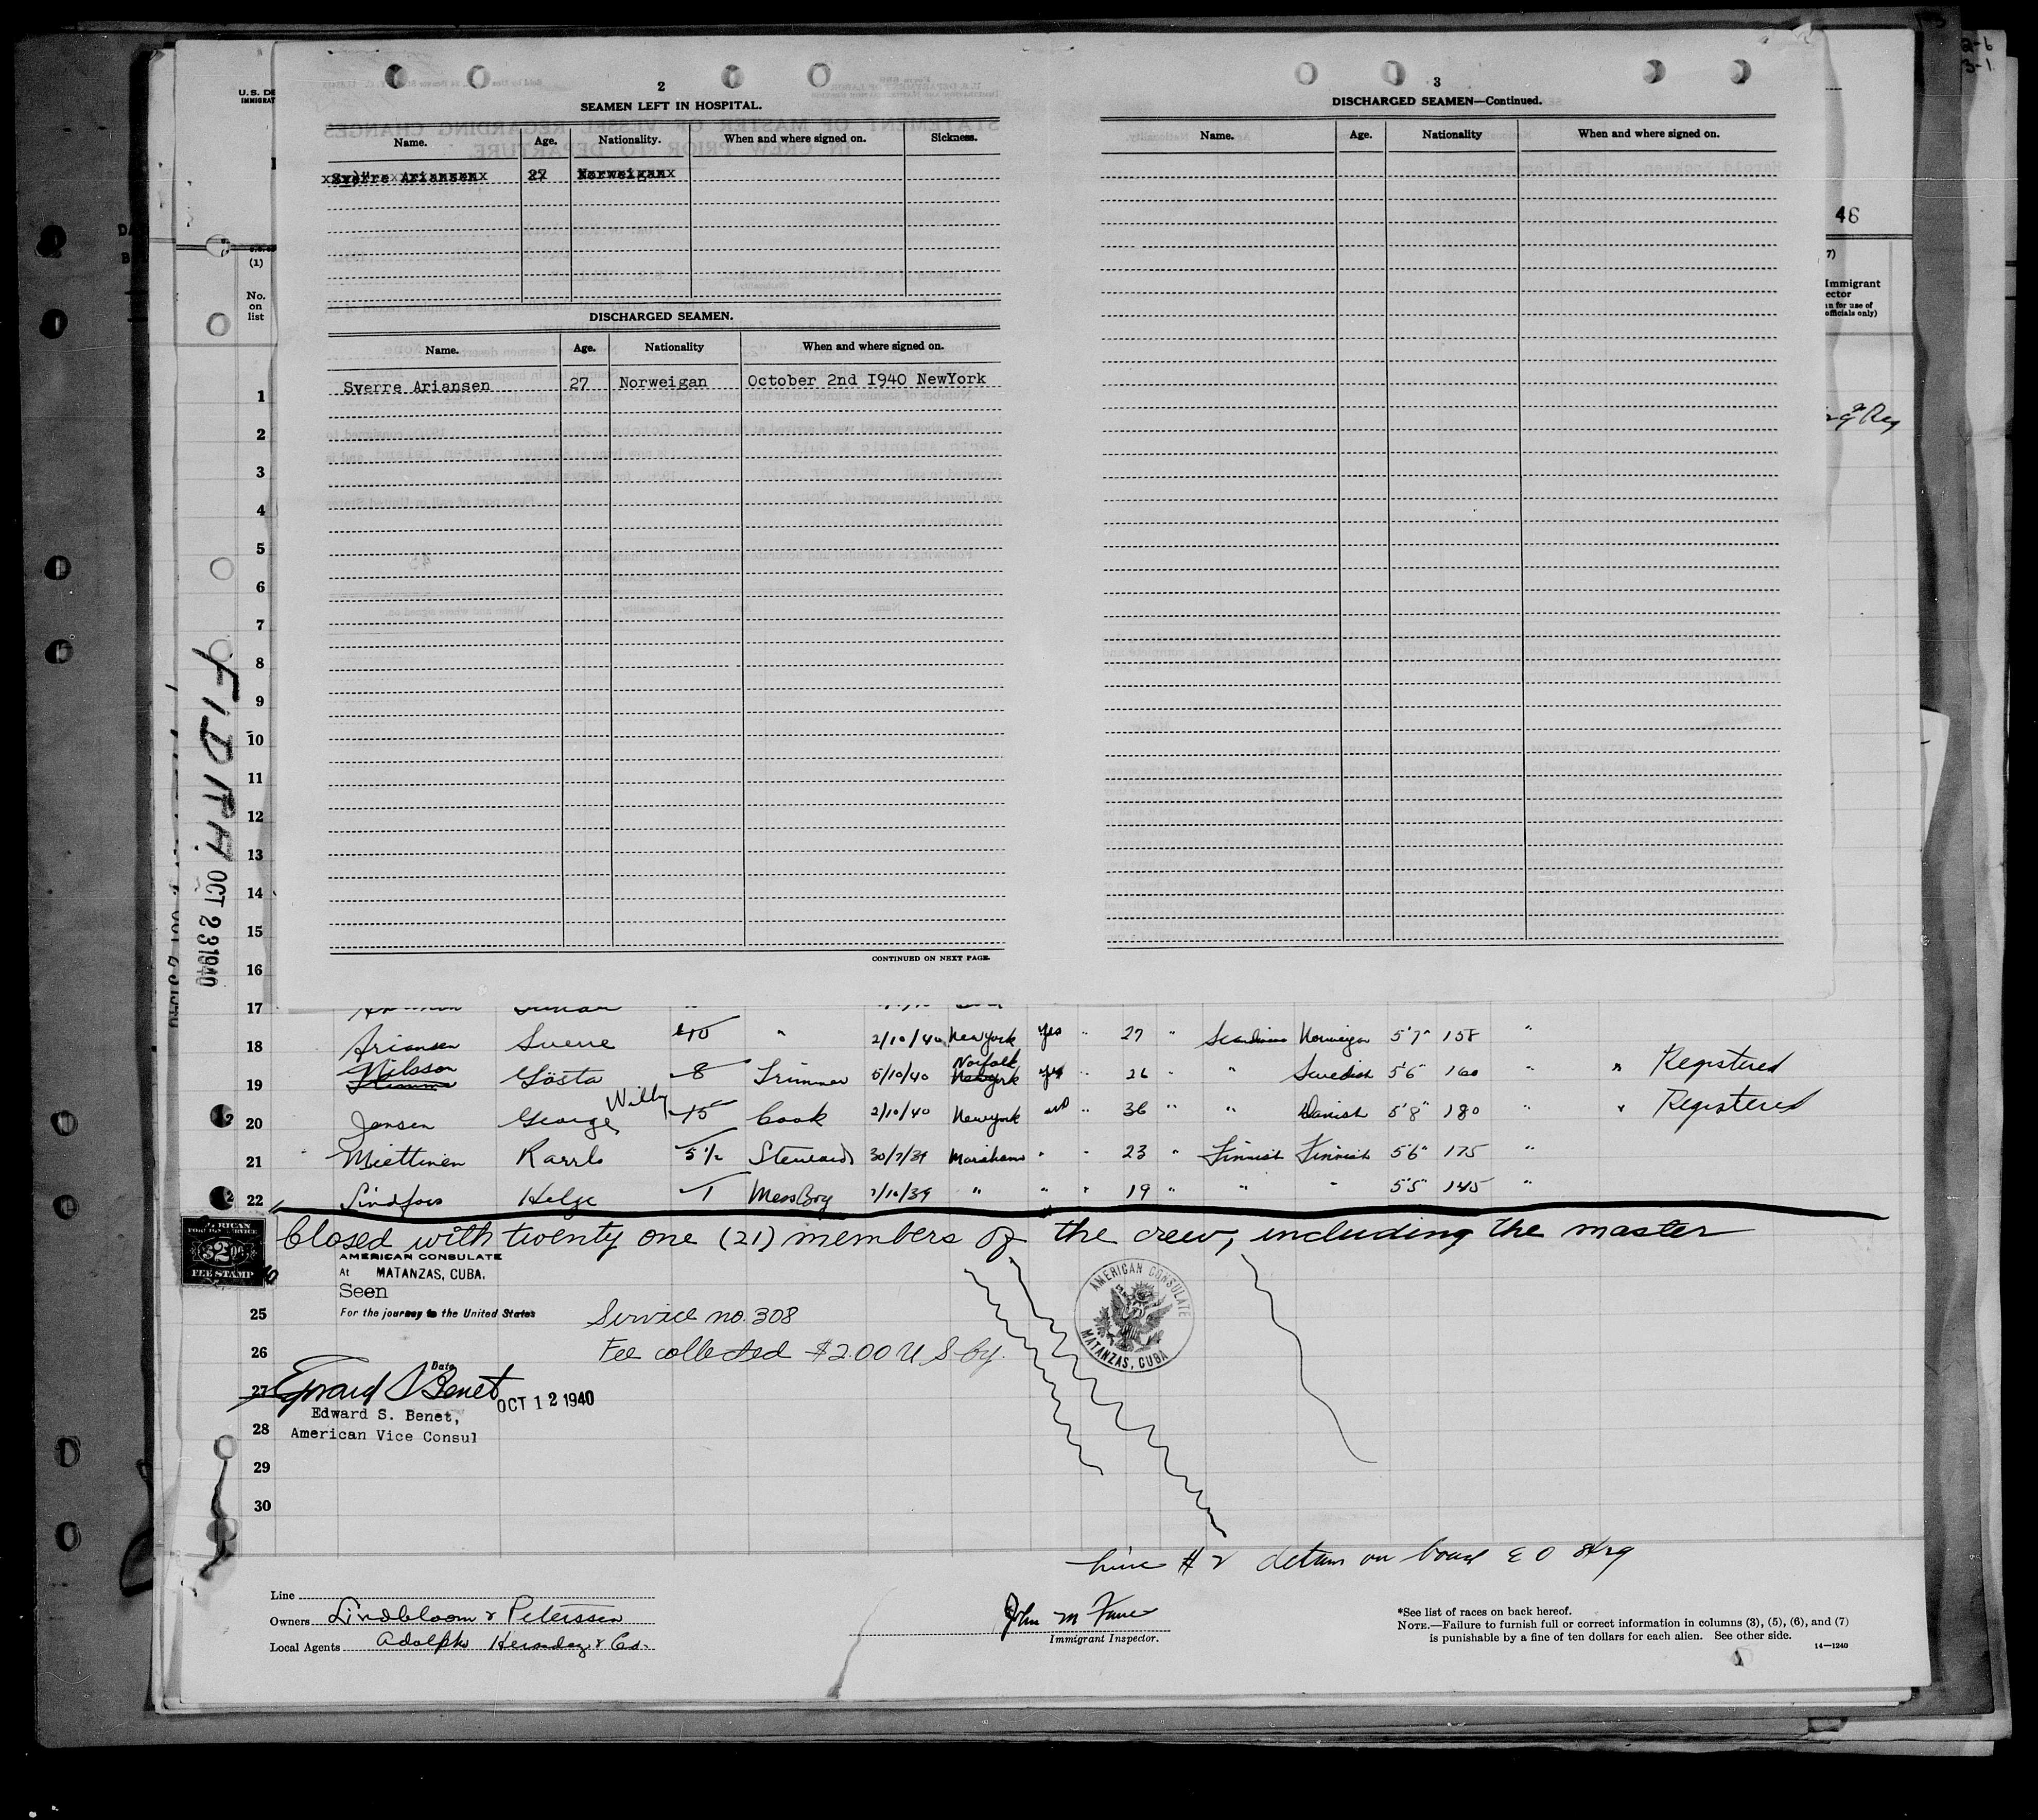 2
SEAMEN LEFT IN HOSPITAL.
Name. Age. Nationality. When and where signed on. Sickness.
Sverre Ariansen 27 Norweigan
DISCHARGED SEAMEN.
Name. Age. Nationality When and where signed on.
Sverre Ariansen 27 Norweigan October 2nd I940 NewYork
CONTINUED ON NEXT PAGE.
3
DISCHARGED SEAMEN—Continued.
Name. Age. Nationality When and where signed on.
2-6
3-1
U.S. DE
IMMIGRAT
46
(1)
No.
on
list
7)
Immigrant
ector
an for use of
officials only)
1
2
3
4
5
6
7
8
9
10
11
12
13
14
15
16
17
FIDRA OCT 23 1940
18 Ariansen Sverre 10 " 2/10/40 New York Yes " 27 " Norweigan 5'7" 158 "
19 Nilsson Gösta 8 Trimmer 5/10/40 Norfolk Newyork yes " 26 " " Swedish 5'6" 160 " " Registered
20 Jansen George Willy 15 Cook 2/10/40 Newyork 36 " " Danish 5'8" 180 " " Registered
21 Miettinen Kaarlo 5 1/2 Steward 30/7/39 " " 23 " Finnish Finnish 5'6" 175 "
22 Lindfors Helge 1 MessBoy " " " 19 " " " 5'5" 145 "
Closed with twenty one (21) members of the crew, including the master
AMERICAN CONSULATE
At MATANZAS, CUBA.
Seen
For the journey to the United States
AMERICAN
FOREIGN SERVICE
$2.00
FEE STAMP
AMERICAN CONSULATE
MATANZAS, CUBA
25
Service no. 308
26
Fee collected $2.00 U S Cy.
27
Date
Edward S Benet OCT 12 1940
Edward S. Benet,
28
American Vice Consul
29
30
Line # 2 detain on board
Line
Owners Lindbloom & Peterssen
Local Agents Adolpho & Co.
John M
Immigrant Inspector.
*See list of races on back hereof.
NOTE.—Failure to furnish full or correct information in columns (3), (5), (6), and (7)
is punishable by a fine of ten dollars for each alien. See other side.
14—1240